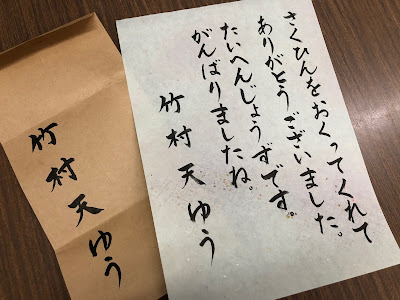 さくひんをおくってくれて
ありがとうございました。
たいへんじょうずです
がんばりましたね。
竹村天ゆう
竹村天ゆう